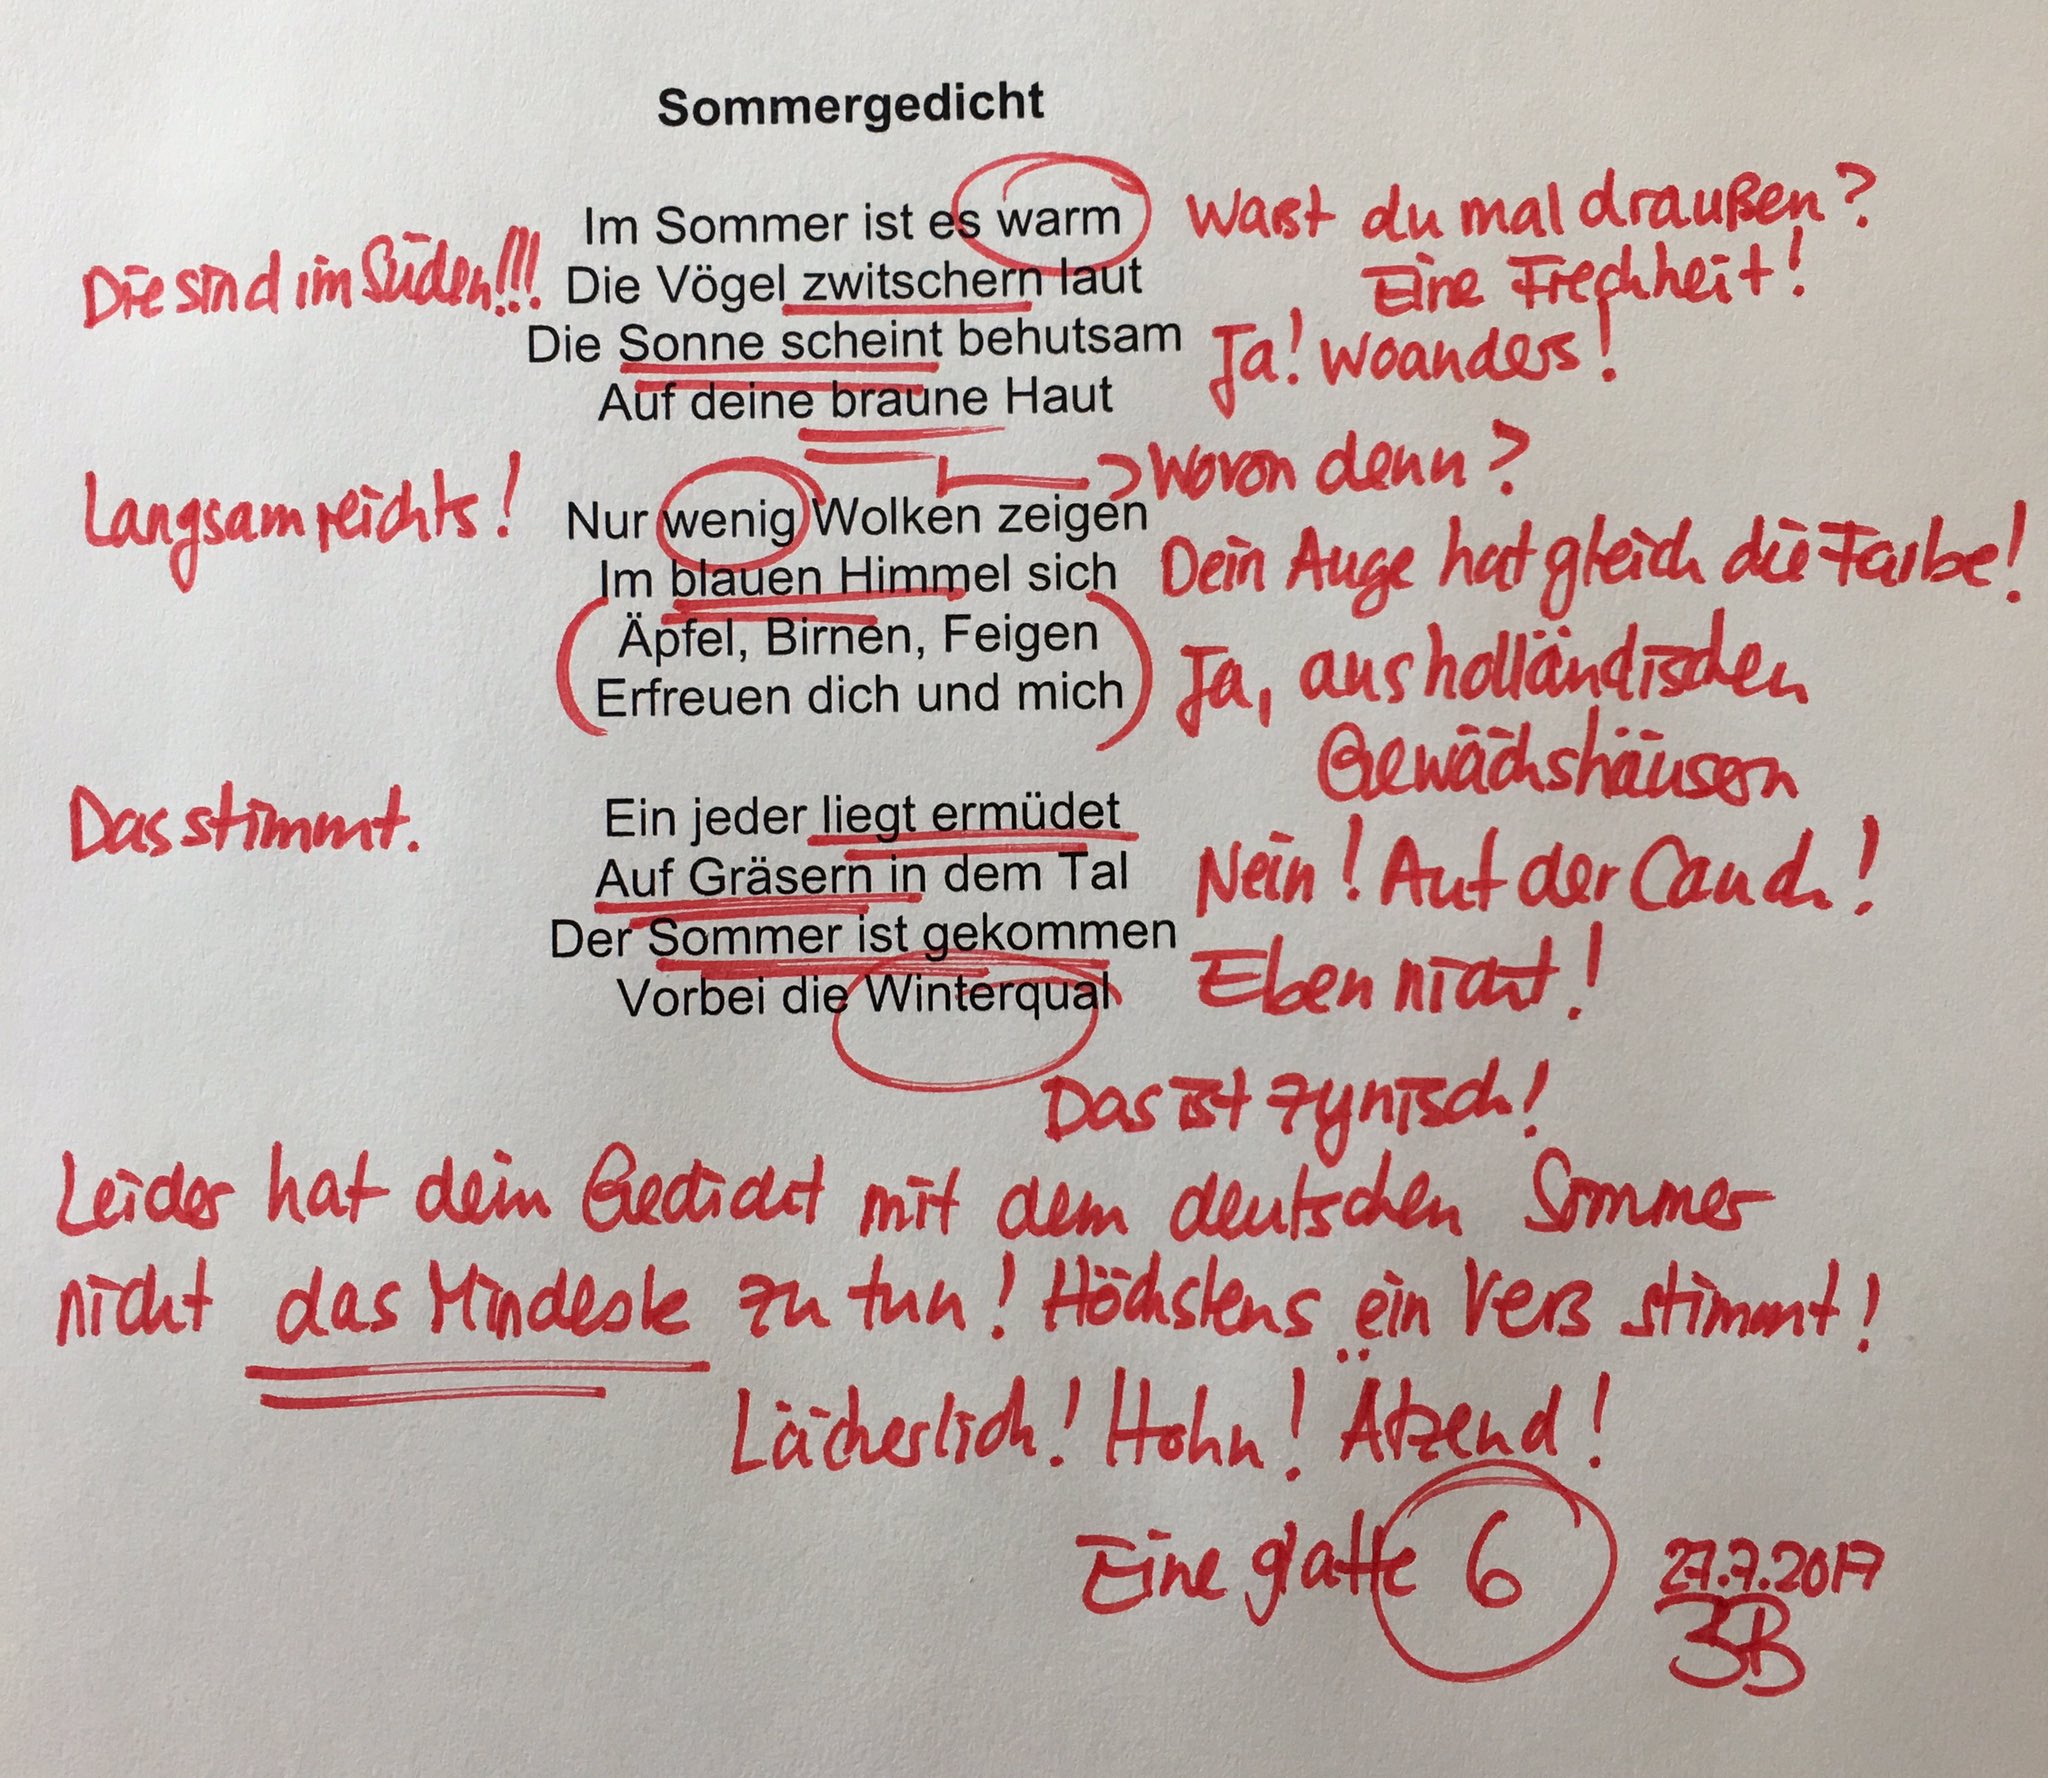 Sommergedicht
Im Sommer ist es warm
Waßt du mal draußen?
Die sind im Süden!!!
Die Vögel zwitschern laut
Eine Frechheit!
Die Sonne scheint behutsam
Ja! Woanders!
Auf deine braune Haut
Wovon denn?
Langsam reichts!
Nur wenig Wolken zeigen
Im blauen Himmel sich
Dein Auge hat gleich die Farbe!
Äpfel, Birnen, Feigen
Erfreuen dich und mich
Ja, aus holländischen
Gewächshäusern
Das stimmt.
Ein jeder liegt ermüdet
Auf Gräsern in dem Tal
Nein! Auf der Cauch!
Der Sommer ist gekommen
Eben nicht!
Vorbei die Winterqual
Das ist zynisch!
Leider hat dein Gedicht mit dem deutschen Sommer
nicht das Mindeste zu tun! Höchstens ein Verß stimmt!
Lächerlich! Hohn! Ätzend!
Eine glatte 6
27.7.2017